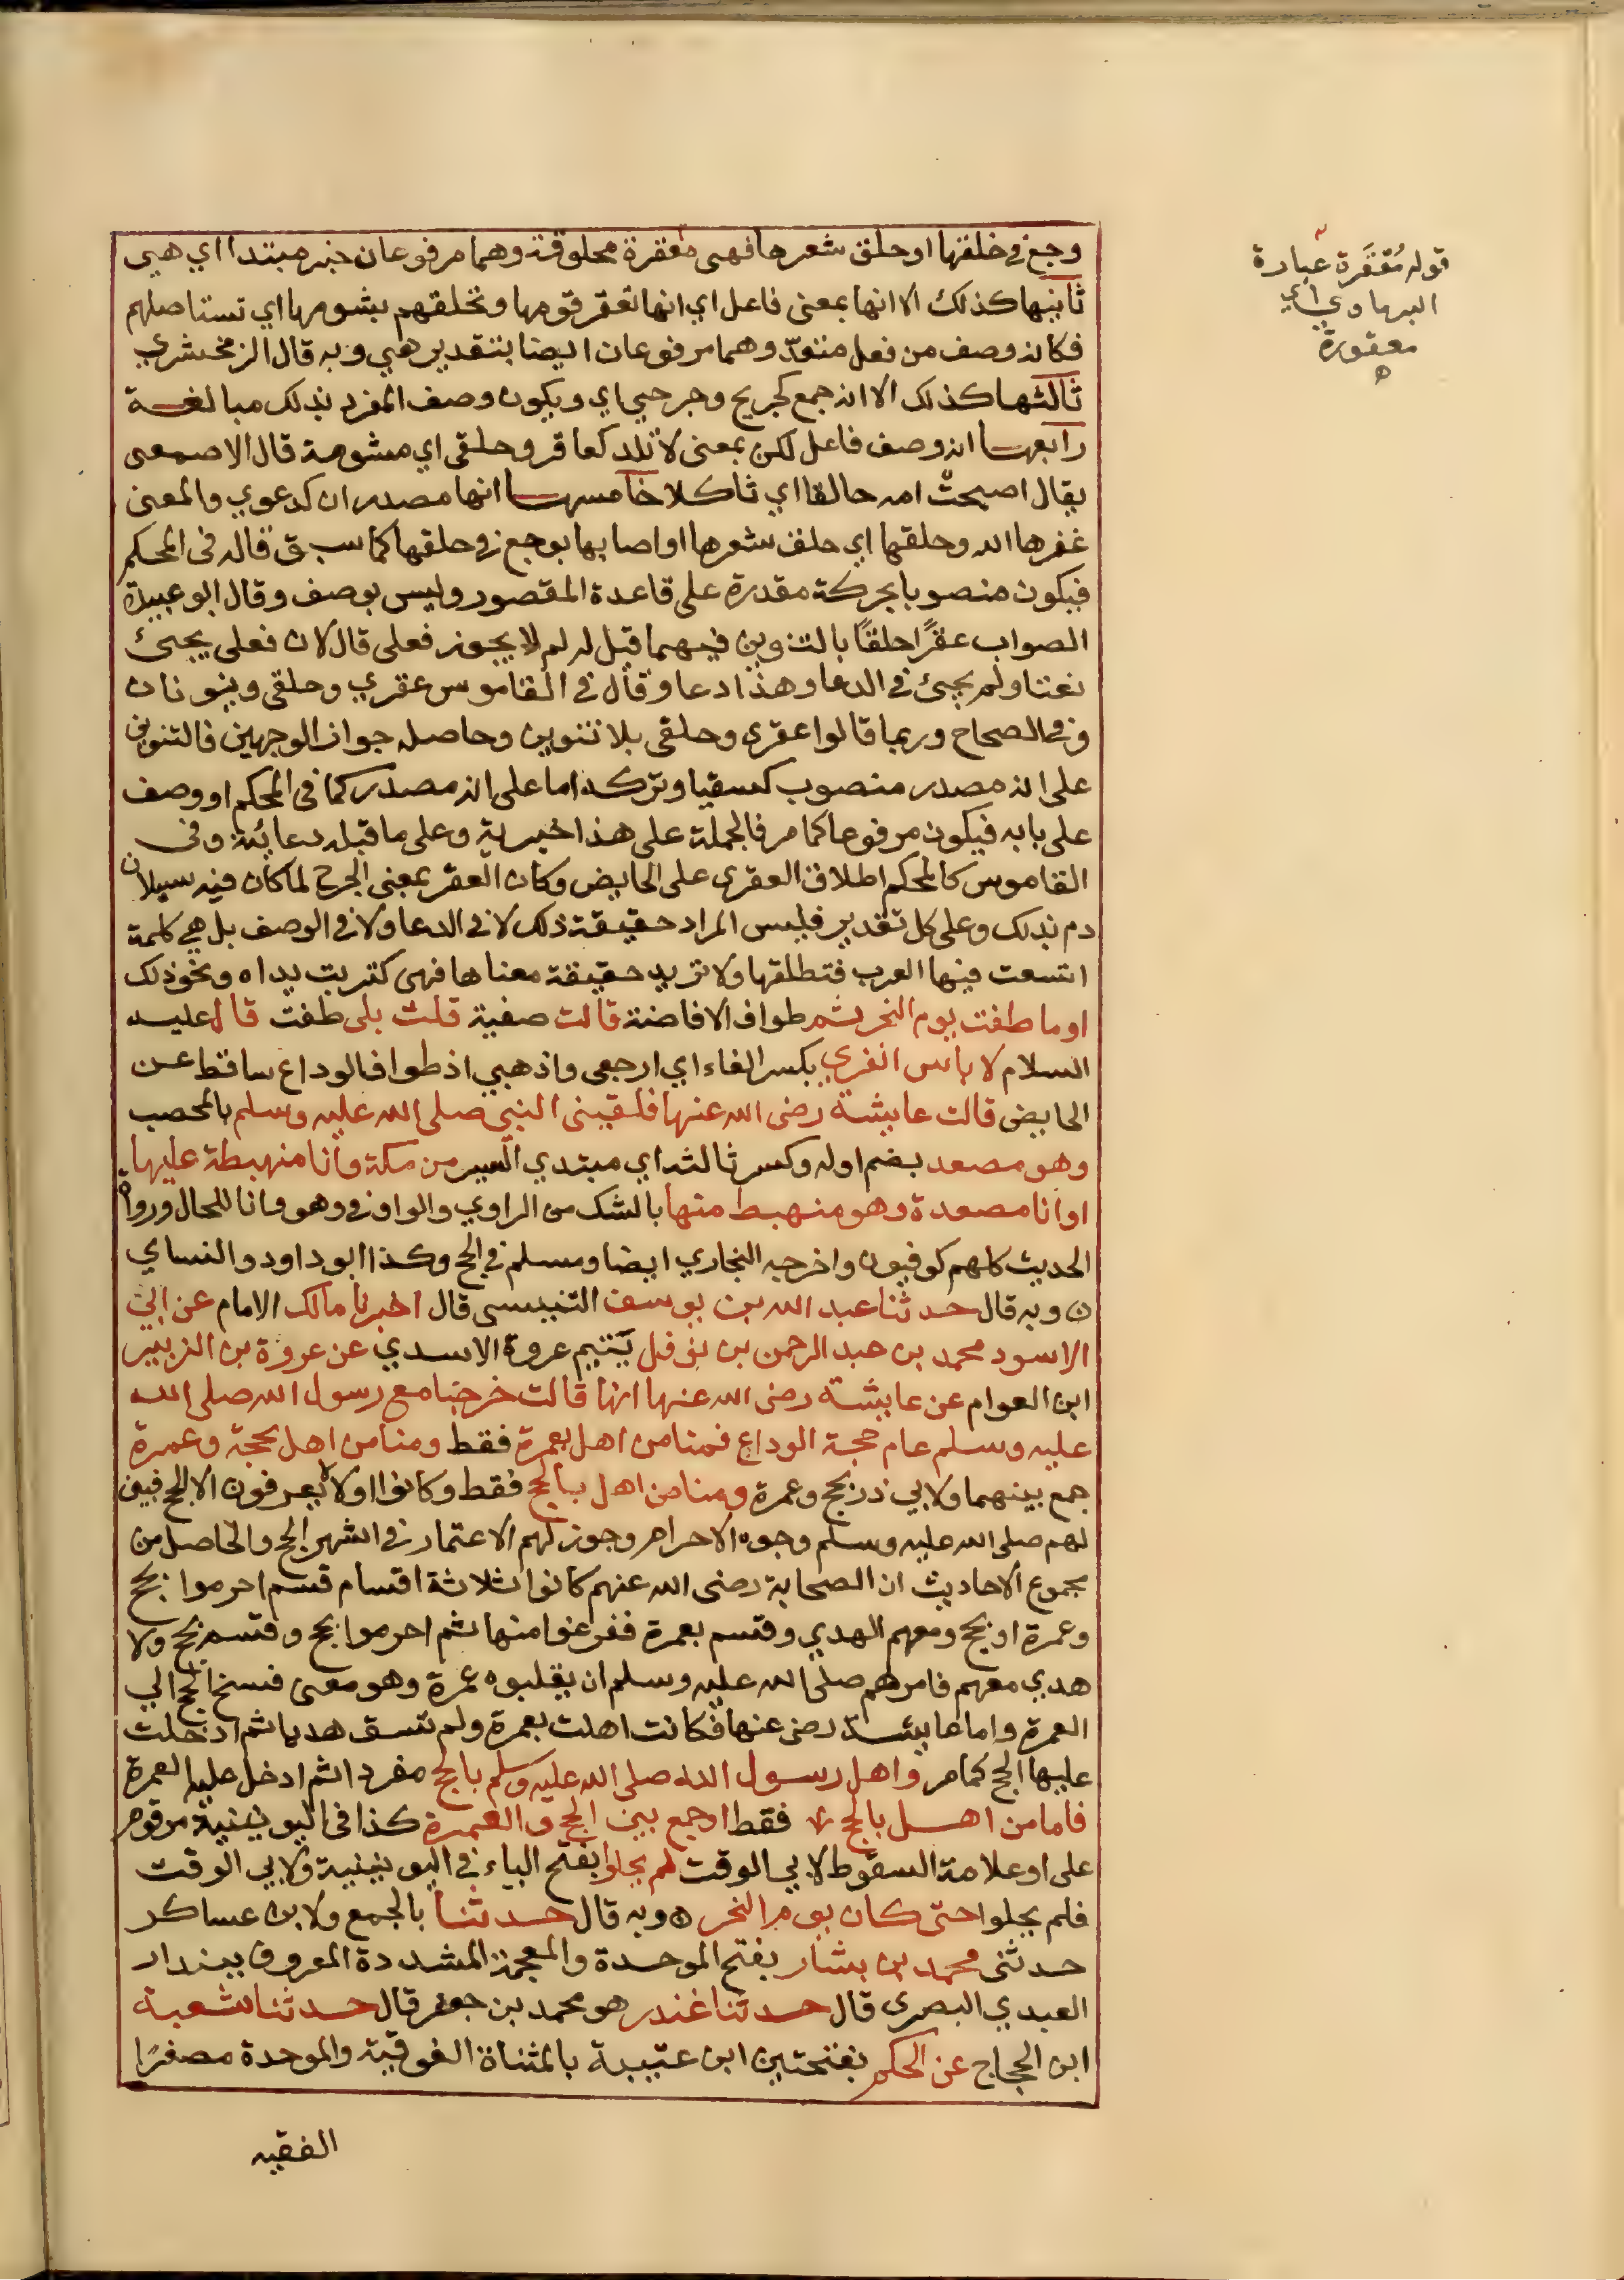 وجع في خلقها او حلق شعرها فهى معقرة محلوقة وهما مرفوعان خبر مبتدا اي هي
ثانيها كذلك الا انها بمعنى فاعل اي انها تعقر قومها وتحلقهم بشومها اي تستاصلهم
فكانه وصف من فعل متعد وهما مرفوعان ايضا بتقدير هي وبه قال الزمخشري
ثالثها كذلك الا انه جمع كجريح وجرحي اي ويكون وصف المفرد بذلك مبالغة
رابعها انه وصف فاعل لكن بمعنى لا تلد كعاقر وحلقى اي مشومة قال الاصمعى
يقال اصبحت امه حالقا اي ثاكلا خامسها انها مصدران كدعوي والمعنى
عقرها الله وحلقها اي حلق شعرها او اصابها بوجع في حلقها كما سبق قاله فى المحكم
فيكون منصوبا بحركة مقدرة على قاعدة المقصور وليس بوصف وقال ابو عبيدة
الصواب عقرًا حلقًا بالتنوين فيهما قيل له لم لا يجوز فعلى قال لان فعلى يجئ
نعتا ولم يجئ في الدعا وهذا دعا وقال في القاموس عقري وحلقى وينونان
وفي الصحاح وربما قالوا عقرى وحلقى بلا تنوين وحاصله جواز الوجهين فالتنوين
على انه مصدر منصوب كسقيا وتركه اما على انه مصدر كما فى المحكم او وصف
على بابه فيكون مرفوعا كما مر فالجملة على هذا خبرية وعلى ما قبله دعائية وفى
القاموس كالمحكم اطلاق العقرى على الحايض وكان العقر بمعنى الجرح لما كان فيه سيلان
دم بذلك وعلى كل تقدير فليس المراد حقيقة ذلك لا في الدعا ولا في الوصف بل هي كلمة
اتسعت فيها العرب فتطلقها ولا تريد حقيقة معناها فهى كتربت يداه ونحو ذلك
اوما طفت يوم النحر ثم طواف الافاضة قالت صفية قلت بلى طفت قال عليه
السلام لا باس انفري بكسر الفاء اي ارجعى واذهبي اذ طواف الوداع ساقط عن
الحايض قالت عايشة رضى الله عنها فلقينى النبي صلى الله عليه وسلم بالمحصب
وهو مصعد بضم اوله وكسر ثالثه اي مبتدي السير من مكة وانا منهبطة عليها
او انا مصعدة وهو منهبط منها بالشك من الراوي والواو في وهو وانا للحال ورواة
الحديث كلهم كوفيون واخرجه البخاري ايضا ومسلم في الحج وكذا ابو داود والنساي
ن وبه قال حدثنا عبد الله بن يوسف التنيسى قال اخبرنا مالك الامام عن ابي
الاسود محمد بن عبد الرحمن بن نوفل يتيم عروة الاسدي عن عروة بن الزبير
ابن العوام عن عايشة رضى الله عنها انها قالت خرجنا مع رسول الله صلى الله
عليه وسلم عام حجة الوداع فمنا من اهل بعمرة فقط ومنا من اهل بحجة وعمرة
جمع بينهما ولابي ذر بحج وعمرة ومنا من اهل بالحج فقط وكانوا اولا لا يعرفون الا الحج فبين
لهم صلى الله عليه وسلم وجوه الاحرام وجوز لهم الاعتمار في اشهر الحج والحاصل من
مجموع الاحاديث ان الصحابة رضى الله عنهم كانوا ثلاثة اقسام قسم احرموا بحج
وعمرة او بحج ومعهم الهدي وقسم بعمرة ففرغوا منها ثم احرموا بحج وقسم بحج ولا
هدي معهم فامرهم صلى الله عليه وسلم ان يقلبوه عمرة وهو معنى فسخ الحج الي
العمرة واما عايشة رضى عنها فكانت اهلت بعمرة ولم تسق هديا ثم ادخلت
عليها الحج كما مر واهل رسول الله صلى الله عليه وسلم بالحج مفردا ثم ادخل عليه العمرة
فاما من اهل بالحج فقط او جمع بين الحج والعمرة كذا فى اليونينية مرقوم
على او علامة السقوط لابي الوقت لم يحلوا بفتح الياء في اليونينية ولابي الوقت
فلم يحلوا حتى كان يوم النحر ه وبه قال حدثنا بالجمع ولابن عساكر
حدثنى محمد بن بشار بفتح الموحدة والمعجمة المشددة المعروف ببندار
العبدي البصرى قال حدثنا غندر هو محمد بن جعفر قال حدثنا شعبة
ابن الحجاج عن الحكم بفتحتين ابن عتيبة بالمثناة الفوقية والموحدة مصغرًا
الفقيه
قوله مُعَقَرة عبارة
البرماوي اي
معقورة
ه